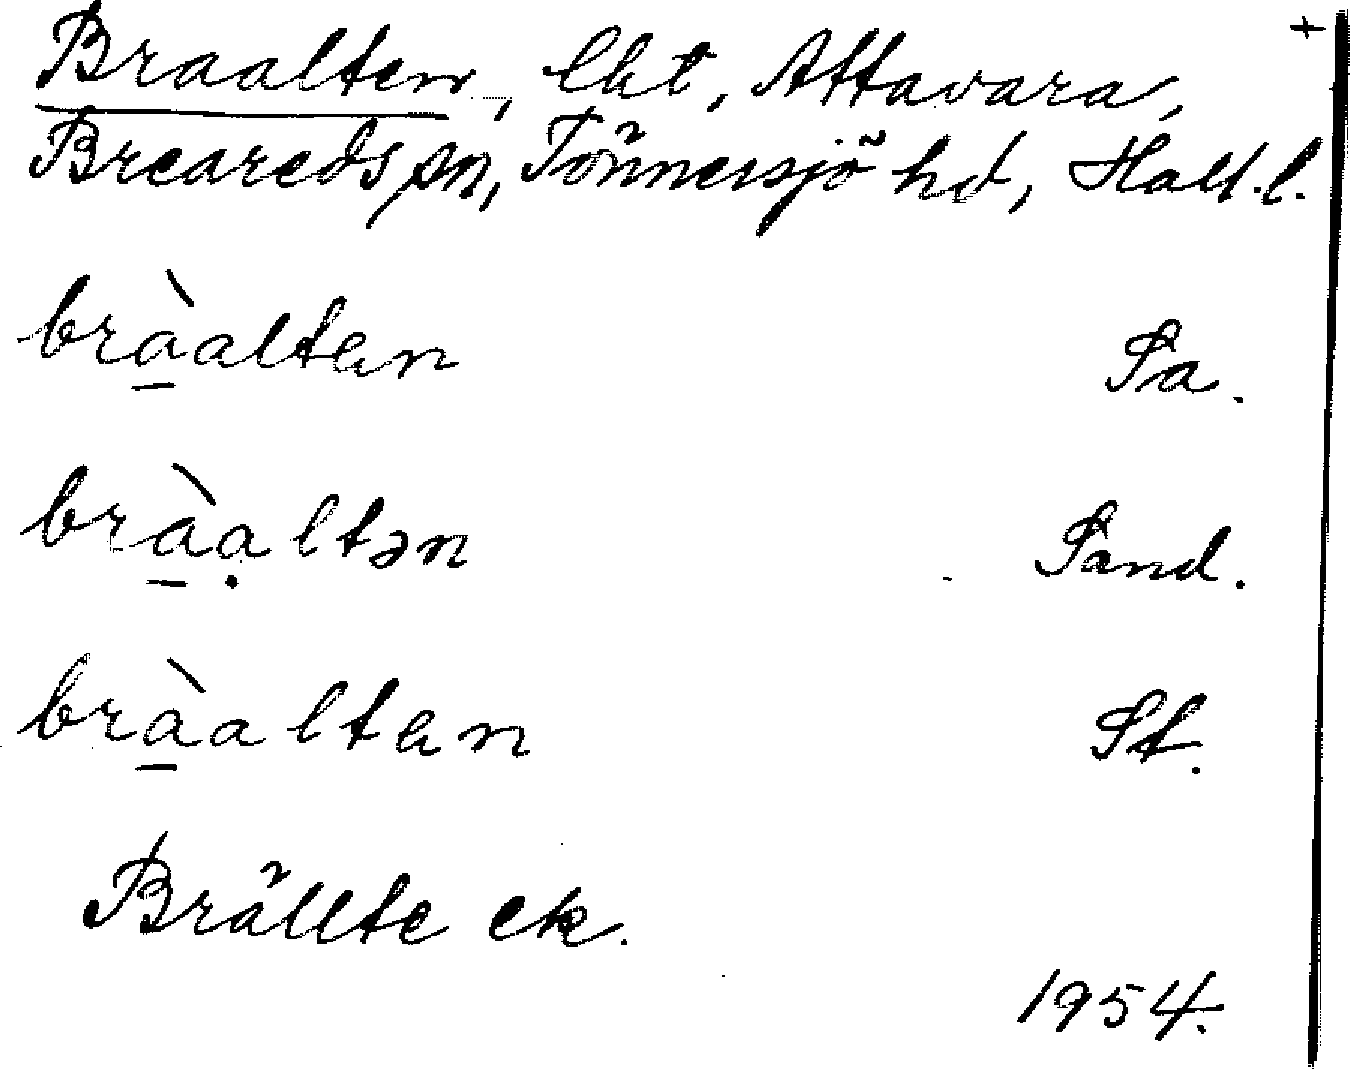 +
Braalten, lht, Attavara,
Breareds sn, Tönnersjö hd, Hall.l.
brà̱altan Sa.
brà̱ạltən Sand.
brà̱altan St.
Brällte ek.
1954.